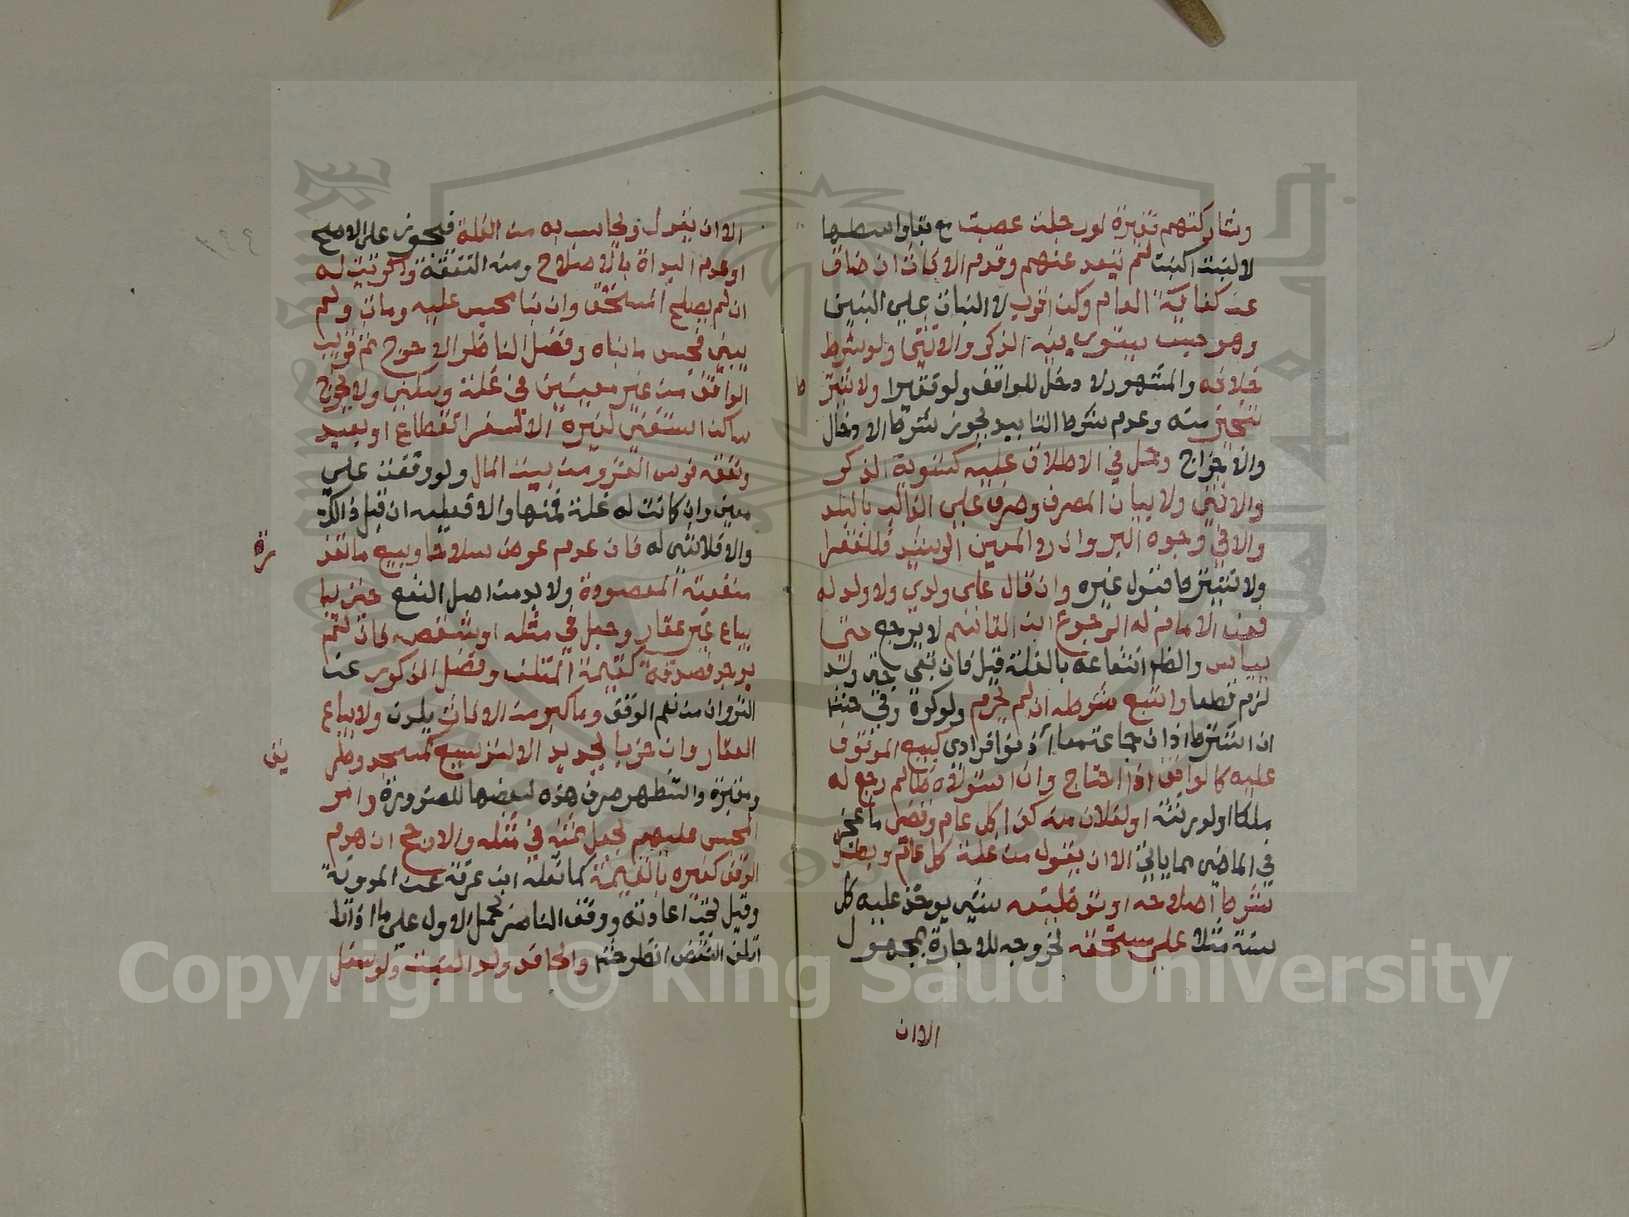 وشاركتهم فقيرة لو رجلت عصبت مع بقاء اسمها
لا لبنت اكبت ثم يبعد عنهم وقدم الاناث ان ضاق
عن كفاية العام ولكن اقوب لا البنات على البنين
وهو حيث يستوي فيه الذكر والانثى ولو شرط
خلافه والمشهور لا دخل للواقف ولو فقيرا ولا يشترط
تنجيز منه وعدم شرط التابيد يجوز شرط الادخال
والاخراج وحمل في الاطلاق عليه كتسوية الذكر
والانثى ولا بيان المصرف وصرف على الغالب بالبلد
والا في وجوه البر وان رد المعين الرشيد فللفقرا
ولا يشترط قبول غيره وان قال على ولدي ولا ولد له
فعند الامام له الرجوع ابن القاسم لا يرجع حتى
ييأس وانظر انتفاعه بالغلة قبل فان بقي حتى ولد
لزم قطعا واتبع شرطه ان لم يحرم ولو كره وفي
ان اشترط اذان جماعة معا اذنوا فرادى كبيع الموقوف
عليه كالواقف اذا احتاج وان استولاه ظالم رجع له
ملكا او لورثته او لفلان منه كذا كل عام وفضل ما عجز
في الماضي مما ياتي الا ان يقول من غلة كل عام وبطل
شرط اصلاحه او توظيفه شيئ يوخذ عليه كل
سنة مثلا على مستحقه لخروجه للاجارة بمجهول
الا ان
الا ان يقول ويحاسب به من الغلة فيجوز على الاصح
او عدم البداة بالاصلاح ومنه التنفقة واكريت له
ان لم يصلح المستحق وان بنا محبس عليه ومات ولم
يبين فحبس ما بناه وفضل الناظر الاحوج ثم قريب
الواقف من غير معينين في غلة وسكنى ولا يخرج
ساكن استغنى لغيره الا لسفر انقطاع او بعيد
ونفقة فرس الغزو من بيت المال ولو وقفت على
معين وان كانت له غلة فمنها والا فعليه ان قبل ذالك
والا فلا شي له فان عدم عوض سلاحا وبيع ما نفذ
منفعته المقصودة ولا بد من اصل النفع
يباع غير عقار وجعل في مثله او شقصه فان لم
يوجد فصدقة كقيمة المتلف وفضل الذكور عن
النزوان من نعم الوقف وما كبر من الاناث يلدن ولا يباع
العقار وان خربا لجديد الا لتوسيع كمسجد وطر
يق
ومقبرة واستظهر صرف هذه لبعضها للضرورة وامر
المحبس عليهم بجعل ثمنه في مثله والارجح ان هدم
الوقف كغيره بالقيمة كما نقله ابن عرفة عن المدونة
وقيل تجب اعادته ووقف الناصر يحمل الاول على ما اذا
اتلف النقض انظر حش والحافد ولد البنت ولو سفل